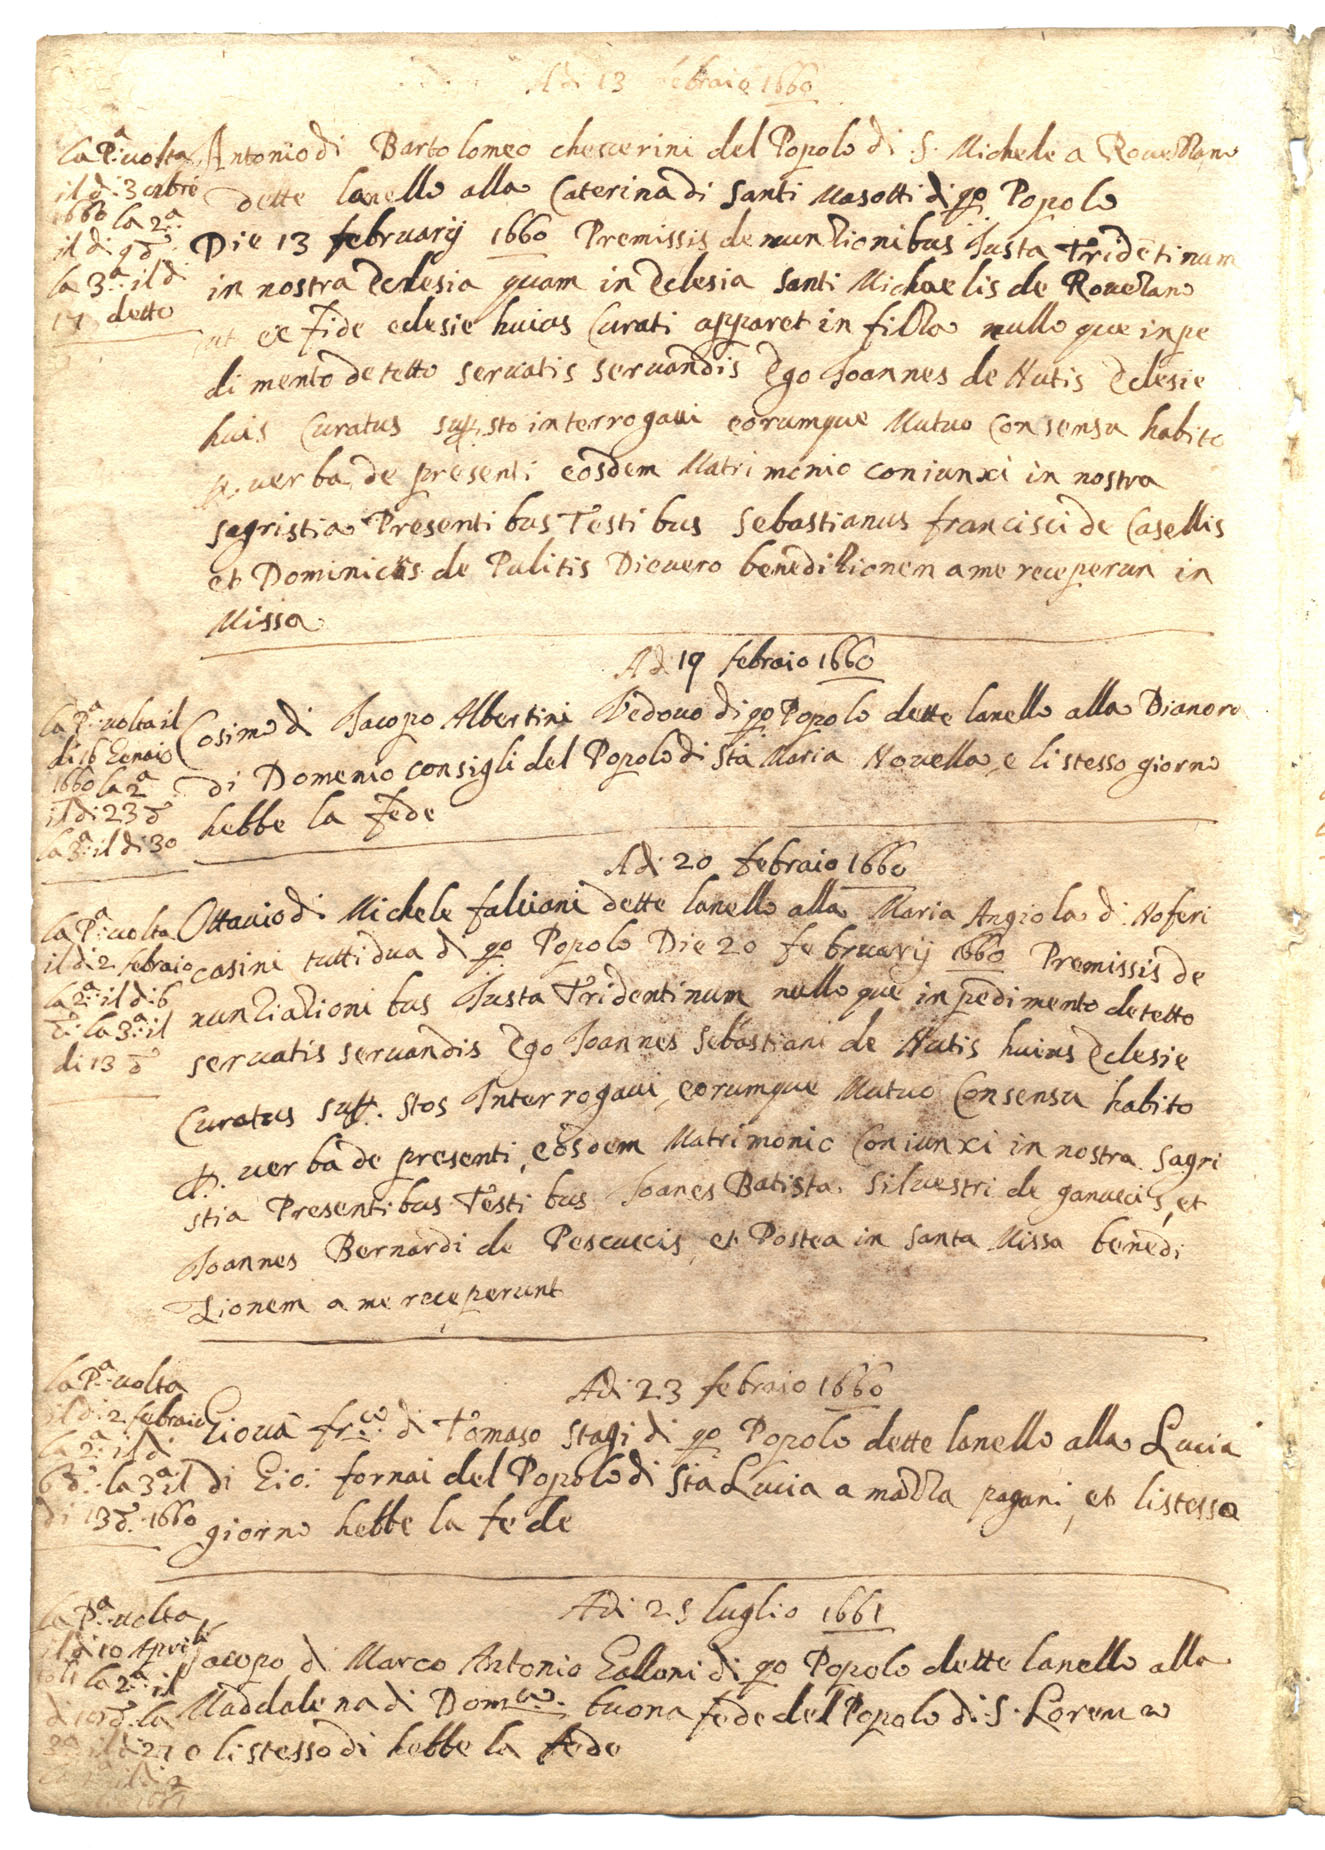 Adi 13 febraio 1660
la P.a uolta
il di 3 xbre
1660 la 2.a
il di 9 d.o
la 3.a il di
17 detto
Antonio di Bartolomeo checcerini del Popolo di S. Michele a Rouezzano
dette lanello alla Caterina di Santi Masotti di qo Popolo
Die 13 februarij 1660 Premissis denunzionibus Justa Tridetinum
in nostra Eclesia quam in Eclesia Santi Michaelis de Rouezano
ut ex fide eclesie huius Curati apparet in filza nullo que inpe
dimento detetto seruatis seruandis Ego Joannes de Nutis Eclesie
huis Curatus supsto interrogaui eorumque Mutuo Consensu habito
p. uerba de presenti eosdem Matrimonio coniunxi in nostra
sagristia Presentibus Testibus Sebastianus francisci de Casellis
et Dominicus de Pulitis Dicuero benedizionem a me receperun in
Missa
Adi 19 febraio 1660
la P.a uolta il
di 16 Genaio
1660 la 2.a
il di 23 d.o
la 3.a il di 30
Cosimo di Jacopo Albertini Vedouo di qo Popolo dette lanello alla Dianora
di Domenio consigli del Popolo di Sta Maria Nouella, e listesso giorno
hebbe la fede
Adi 20 febraio 1660
la P.a uolta
il di 2 febraio
la 2.a il di 6
d.o la 3.a il
di 13 d.o
Ottauio di Michele falciani dette lanello alla Maria Angiola di Noferi
casini tutti dua di qo Popolo Die 20 februarij 1660 Premissis de
nunziazionibus Justa Tridentinum nullo que inpedimento detetto
seruatis seruandis Ego Joannes Sebastiani de Nutis huius Eclesie
Curatus sup. stos Interrogaui, eorumque Mutuo Consensu habito
p. uerba de presenti, eosdem Matrimonio Coniunxi in nostra Sagri
stia Presentibus Testibus Joanes Batista Siluestri de ganuccis, et
Joannes Bernardi de Pescuccis, et Postea in Santa Missa benedi
zionem a me receperunt
Adi 23 febraio 1660
la P.a uolta
il di 2 febraio
la 2.a il di
6 d.o la 3.a il
di 13 d.o 1660
Giouā fr.co di Tomaso Stagi di qo Popolo dette lanello alla Lucia
di Gio: fornai del Popolo di Sta Lucia a mazza pagani, et listesso
giorno hebbe la fede
Adi 25 luglio 1661
la P.a uolta
il di 10 Aprile
la 2.a il
di d.o la
3.a il di 27
Jacopo di Marco Antonio Galloni di qo Popolo dette lanello alla
Maddalena di Dom.co buona fede del Popolo di S. Lorenzo
e listesso di hebbe la fede